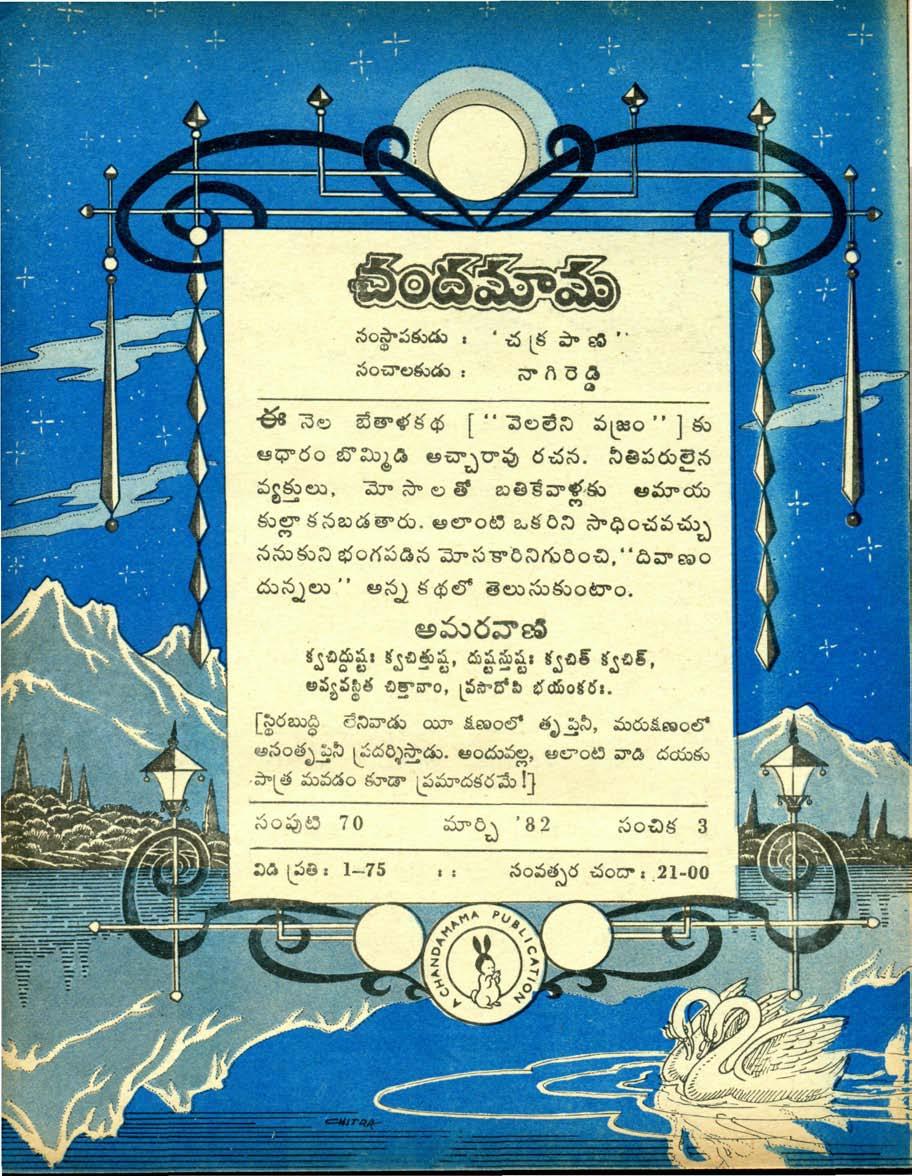 చందమామ
సంస్థాపకుడు : ‘చక్రపాణి’’
సంచాలకుడు : నాగిరెడ్డి
ఈ నెల బేతాళకథ [‘‘వెలలేని వజ్రం’’] కు
ఆధారం బొమ్మిడి అచ్చారావు రచన. నీతిపరులైన
వ్యక్తులు, మోసాలతో బతికేవాళ్లకు అమాయ
కుల్లా కనబడతారు. అలాంటి ఒకరిని సాధించవచ్చు
ననుకుని భంగపడిన మోసకారినిగురించి, ‘‘దివాణం
దున్నలు’’ అన్న కథలో తెలుసుకుంటాం.
అమరవాణి
క్వచిద్దుష్టః క్వచిత్తుష్ట, దుష్టస్తుష్టః క్వచిత్ క్వచిత్,
అవ్యవస్థిత చిత్తానాం, ప్రసాదోపి భయంకరః.
[స్థిరబుద్ధి లేనివాడు యీ క్షణంలో తృప్తినీ, మరుక్షణంలో
అసంతృప్తినీ ప్రదర్శిస్తాడు. అందువల్ల, అలాంటి వాడి దయకు
పాత్ర మవడం కూడా ప్రమాదకరమే!]
సంపుటి 70 మార్చి '82 సంచిక 3
విడి ప్రతి : 1–75 : : సంవత్సర చందా : 21-00
A CHANDAMAMA PUBLICATION
CHITRA